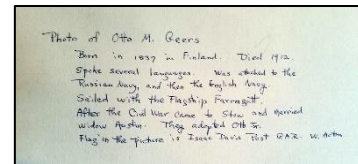 Photo of Otto M. Geers
Born in 1839 in Finland. Died 1912.
Spoke several languages. Was attached to the
Russian Navy, and then the English Navy.
Sailed with the Flagship Farragut.
After the Civil War came to Stow and married
widow Austin. They adopted Otto Jr.
Flag in the picture is Isaac Davis Post G.A.R. W. Acton